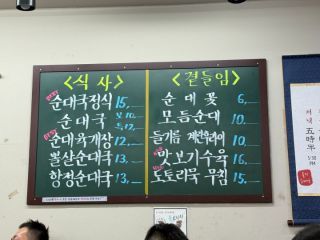 <식사>
순대국정식 15,
순대국 보 10, 특 12,
순대육개장 12,
별산순대국 13,
항정순대국 13,
<곁들임>
순대꽃 6,
모듬순대 10,
들기름 계란후라이 10,
맛보기수육 16,
도토리묵 무침 15,
五時半
5:30
PM